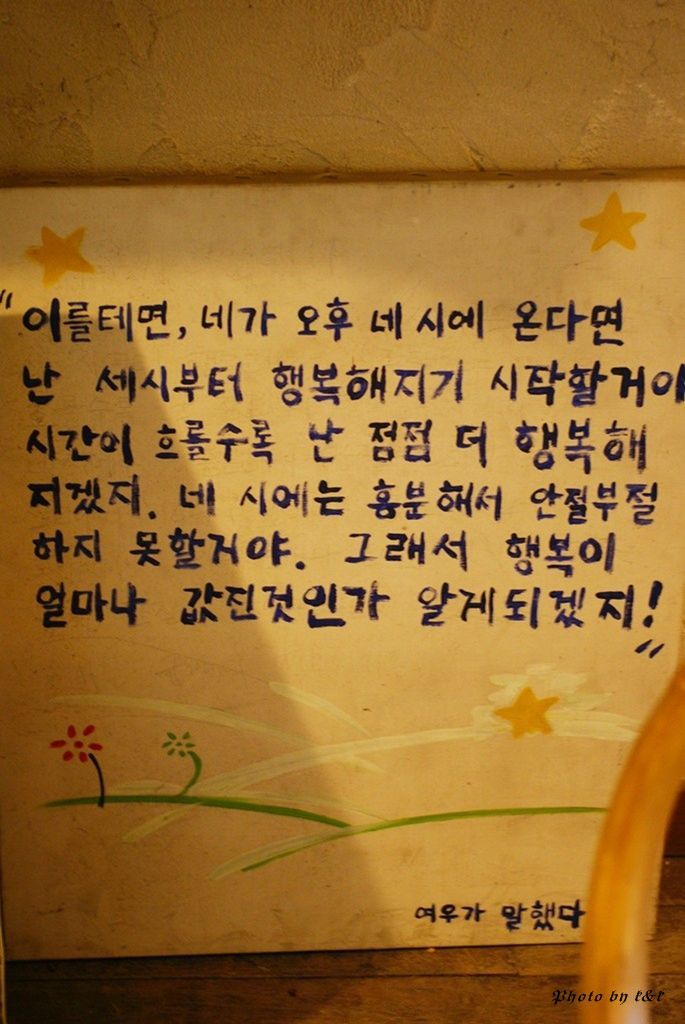 "이를테면, 네가 오후 네 시에 온다면
난 세시부터 행복해지기 시작할거야
시간이 흐를수록 난 점점 더 행복해
지겠지. 네 시에는 흥분해서 안절부절
하지 못할거야. 그래서 행복이
얼마나 값진것인가 알게되겠지!"
여우가 말했다
Photo by k&k